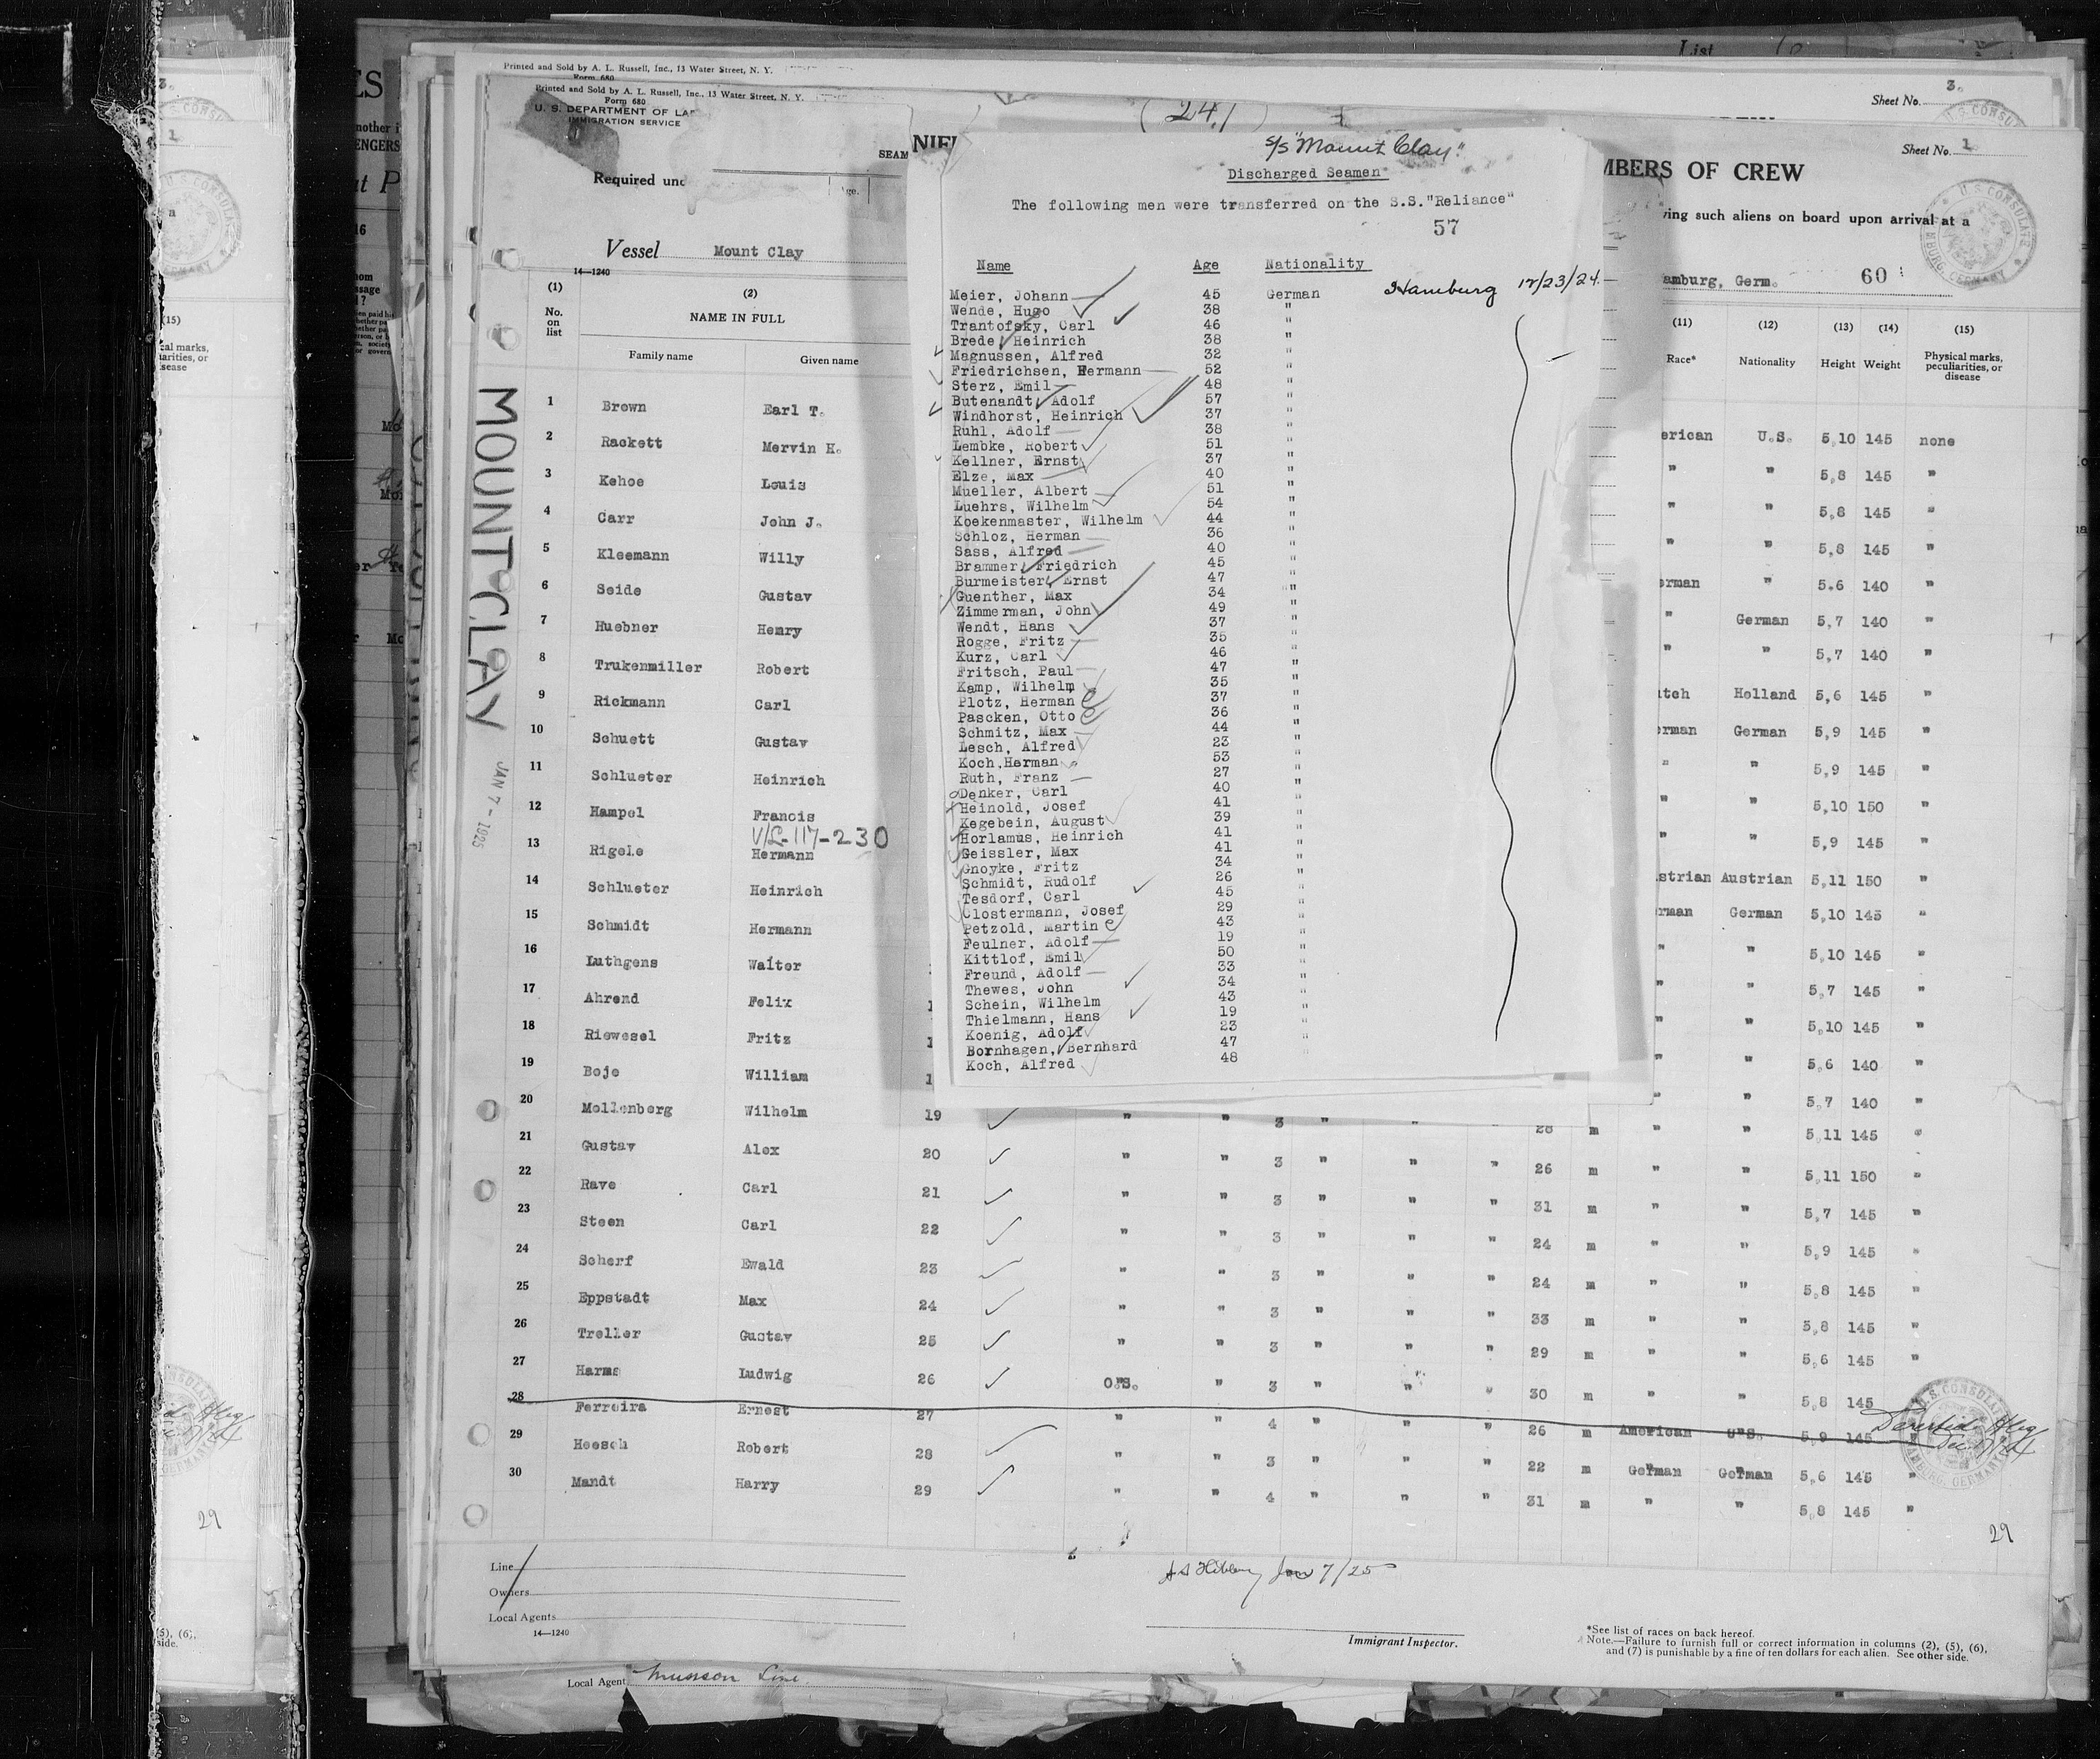 List
Printed and Sold by A. L. Russell, Inc., 13 Water Street, N. Y.
Form 680
Sheet No. 3.
Printed and Sold by A. L. Russell, Inc., 13 Water Street, N. Y.
Form 680
U. S. DEPARTMENT OF LA
IMMIGRATION SERVICE
(24)
Sheet No. 1
MBERS OF CREW
Required und
ving such aliens on board upon arrival at a
Vessel Mount Clay
amburg, Germ. 60
14—1240
S/S "Mount Clay"
Discharged Seamen
The following men were transferred on the S.S."Reliance"
57
Name Age Nationality
Hamburg 12/23/24.
Meier, Johann 45 German
Wende, Hugo 38 "
Trantofsky, Carl 46 "
Brede, Heinrich 38 "
Magnussen, Alfred 32 "
Friedrichsen, Hermann 52 "
Sterz, Emil 48 "
Butenandt, Adolf 57 "
Windhorst, Heinrich 37 "
Ruhl, Adolf 38 "
Lembke, Robert 51 "
Kellner, Ernst 37 "
Elze, Max 40 "
Mueller, Albert 51 "
Luehrs, Wilhelm 54 "
Koekenmaster, Wilhelm 44 "
Schloz, Herman 36 "
Sass, Alfred 40 "
Brammer, Friedrich 45 "
Burmeister, Ernst 47 "
Guenther, Max 34 "
Zimmerman, John 49 "
Wendt, Hans 37 "
Rogge, Fritz 35 "
Kurz, Carl 46 "
Fritsch, Paul 47 "
Kamp, Wilhelm 35 "
Plotz, Herman 37 "
Pascken, Otto 36 "
Schmitz, Max 44 "
Lesch, Alfred 23 "
Koch, Herman 53 "
Ruth, Franz 27 "
Denker, Carl 40 "
Heinold, Josef 41 "
Kegebein, August 39 "
Horlamus, Heinrich 41 "
Geissler, Max 41 "
Gnoyke, Fritz 34 "
Schmidt, Rudolf 26 "
Tesdorf, Carl 45 "
Clostermann, Josef 29 "
Petzold, Martin 43 "
Feulner, Adolf 19 "
Kittlof, Emil 50 "
Freund, Adolf 33 "
Thewes, John 34 "
Schein, Wilhelm 43 "
Thielmann, Hans 19 "
Koenig, Adolf 23 "
Bornhagen, Bernhard 47 "
Koch, Alfred 48 "
MOUNT CLAY JAN 7 - 1925
(1) (2) (11) (12) (13) (14) (15)
No. on list NAME IN FULL Race* Nationality Height Weight Physical marks, peculiarities, or disease
Family name Given name
1 Brown Earl T. erican U.S. 5,10 145 none
2 Rackett Mervin H. " " 5,8 145 "
3 Kehoe Louis " " 5,8 145 "
4 Carr John J. " " 5,8 145 "
5 Kleemann Willy erman " 5.6 140 "
6 Seide Gustav " German 5,7 140 "
7 Huebner Henry " " 5,7 140 "
8 Trukenmiller Robert utch Holland 5,6 145 "
9 Rickmann Carl erman German 5,9 145 "
10 Schuett Gustav " " 5,9 145 "
11 Schlueter Heinrich " " 5,10 150 "
12 Hampel Francis " " 5,9 145 "
V/L-117-230
13 Rigele Hermann strian Austrian 5,11 150 "
14 Schlueter Heinrich rman German 5,10 145 "
15 Schmidt Hermann " " 5,10 145 "
16 Luthgens Walter " " 5,7 145 "
17 Ahrend Felix " " 5,10 145 "
18 Riewesel Fritz " " 5,6 140 "
19 Boje William " " 5,7 140 "
20 Mollenberg Wilhelm 19 " " 3 " " 28 m " " 5,11 145 "
21 Gustav Alex 20 " " 3 " " " 26 m " " 5,11 150 "
22 Rave Carl 21 " " 3 " " " 31 m " " 5,7 145 "
23 Steen Carl 22 " " 3 " " " 24 m " " 5,9 145 "
24 Scherf Ewald 23 " " 3 " " " 24 m " " 5,8 145 "
25 Eppstadt Max 24 " " 3 " " " 33 m " " 5,8 145 "
26 Treller Gustav 25 " " 3 " " " 29 m " " 5,6 145 "
27 Harms Ludwig 26 O.S. " 3 " " " 30 m " " 5,8 145
28 Ferreira Ernest 27 " " 4 " " " 26 m American U.S. 5,9 145 "
29 Heesch Robert 28 " " 3 " " " 22 m German German 5,6 145 "
30 Mandt Harry 29 " " 4 " " " 31 m " " 5,8 145 "
29
Line
Owners
Local Agents
14—1240
Jan 7/25
Immigrant Inspector.
*See list of races on back hereof.
Note.—Failure to furnish full or correct information in columns (2), (5), (6),
and (7) is punishable by a fine of ten dollars for each alien. See other side.
Local Agent Munson Line